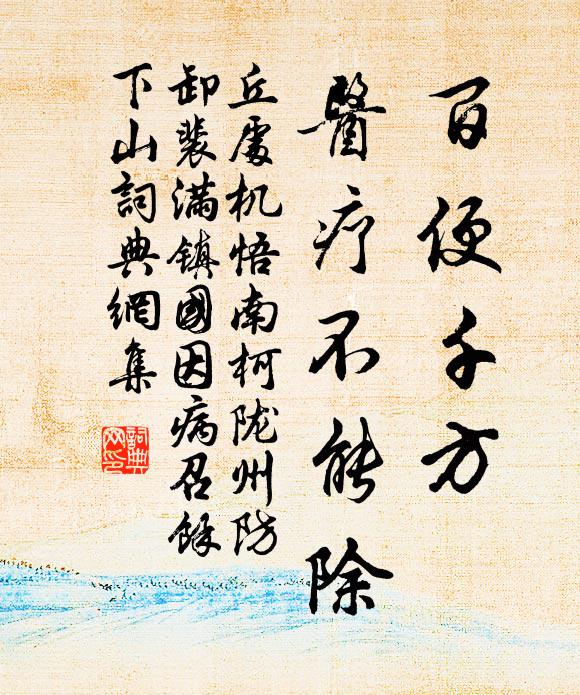 百便千方
醫疗不能除
丘處机悟南柯陇州防
卸裴满镇國因病召餘
下山詞典網集
詞典网印